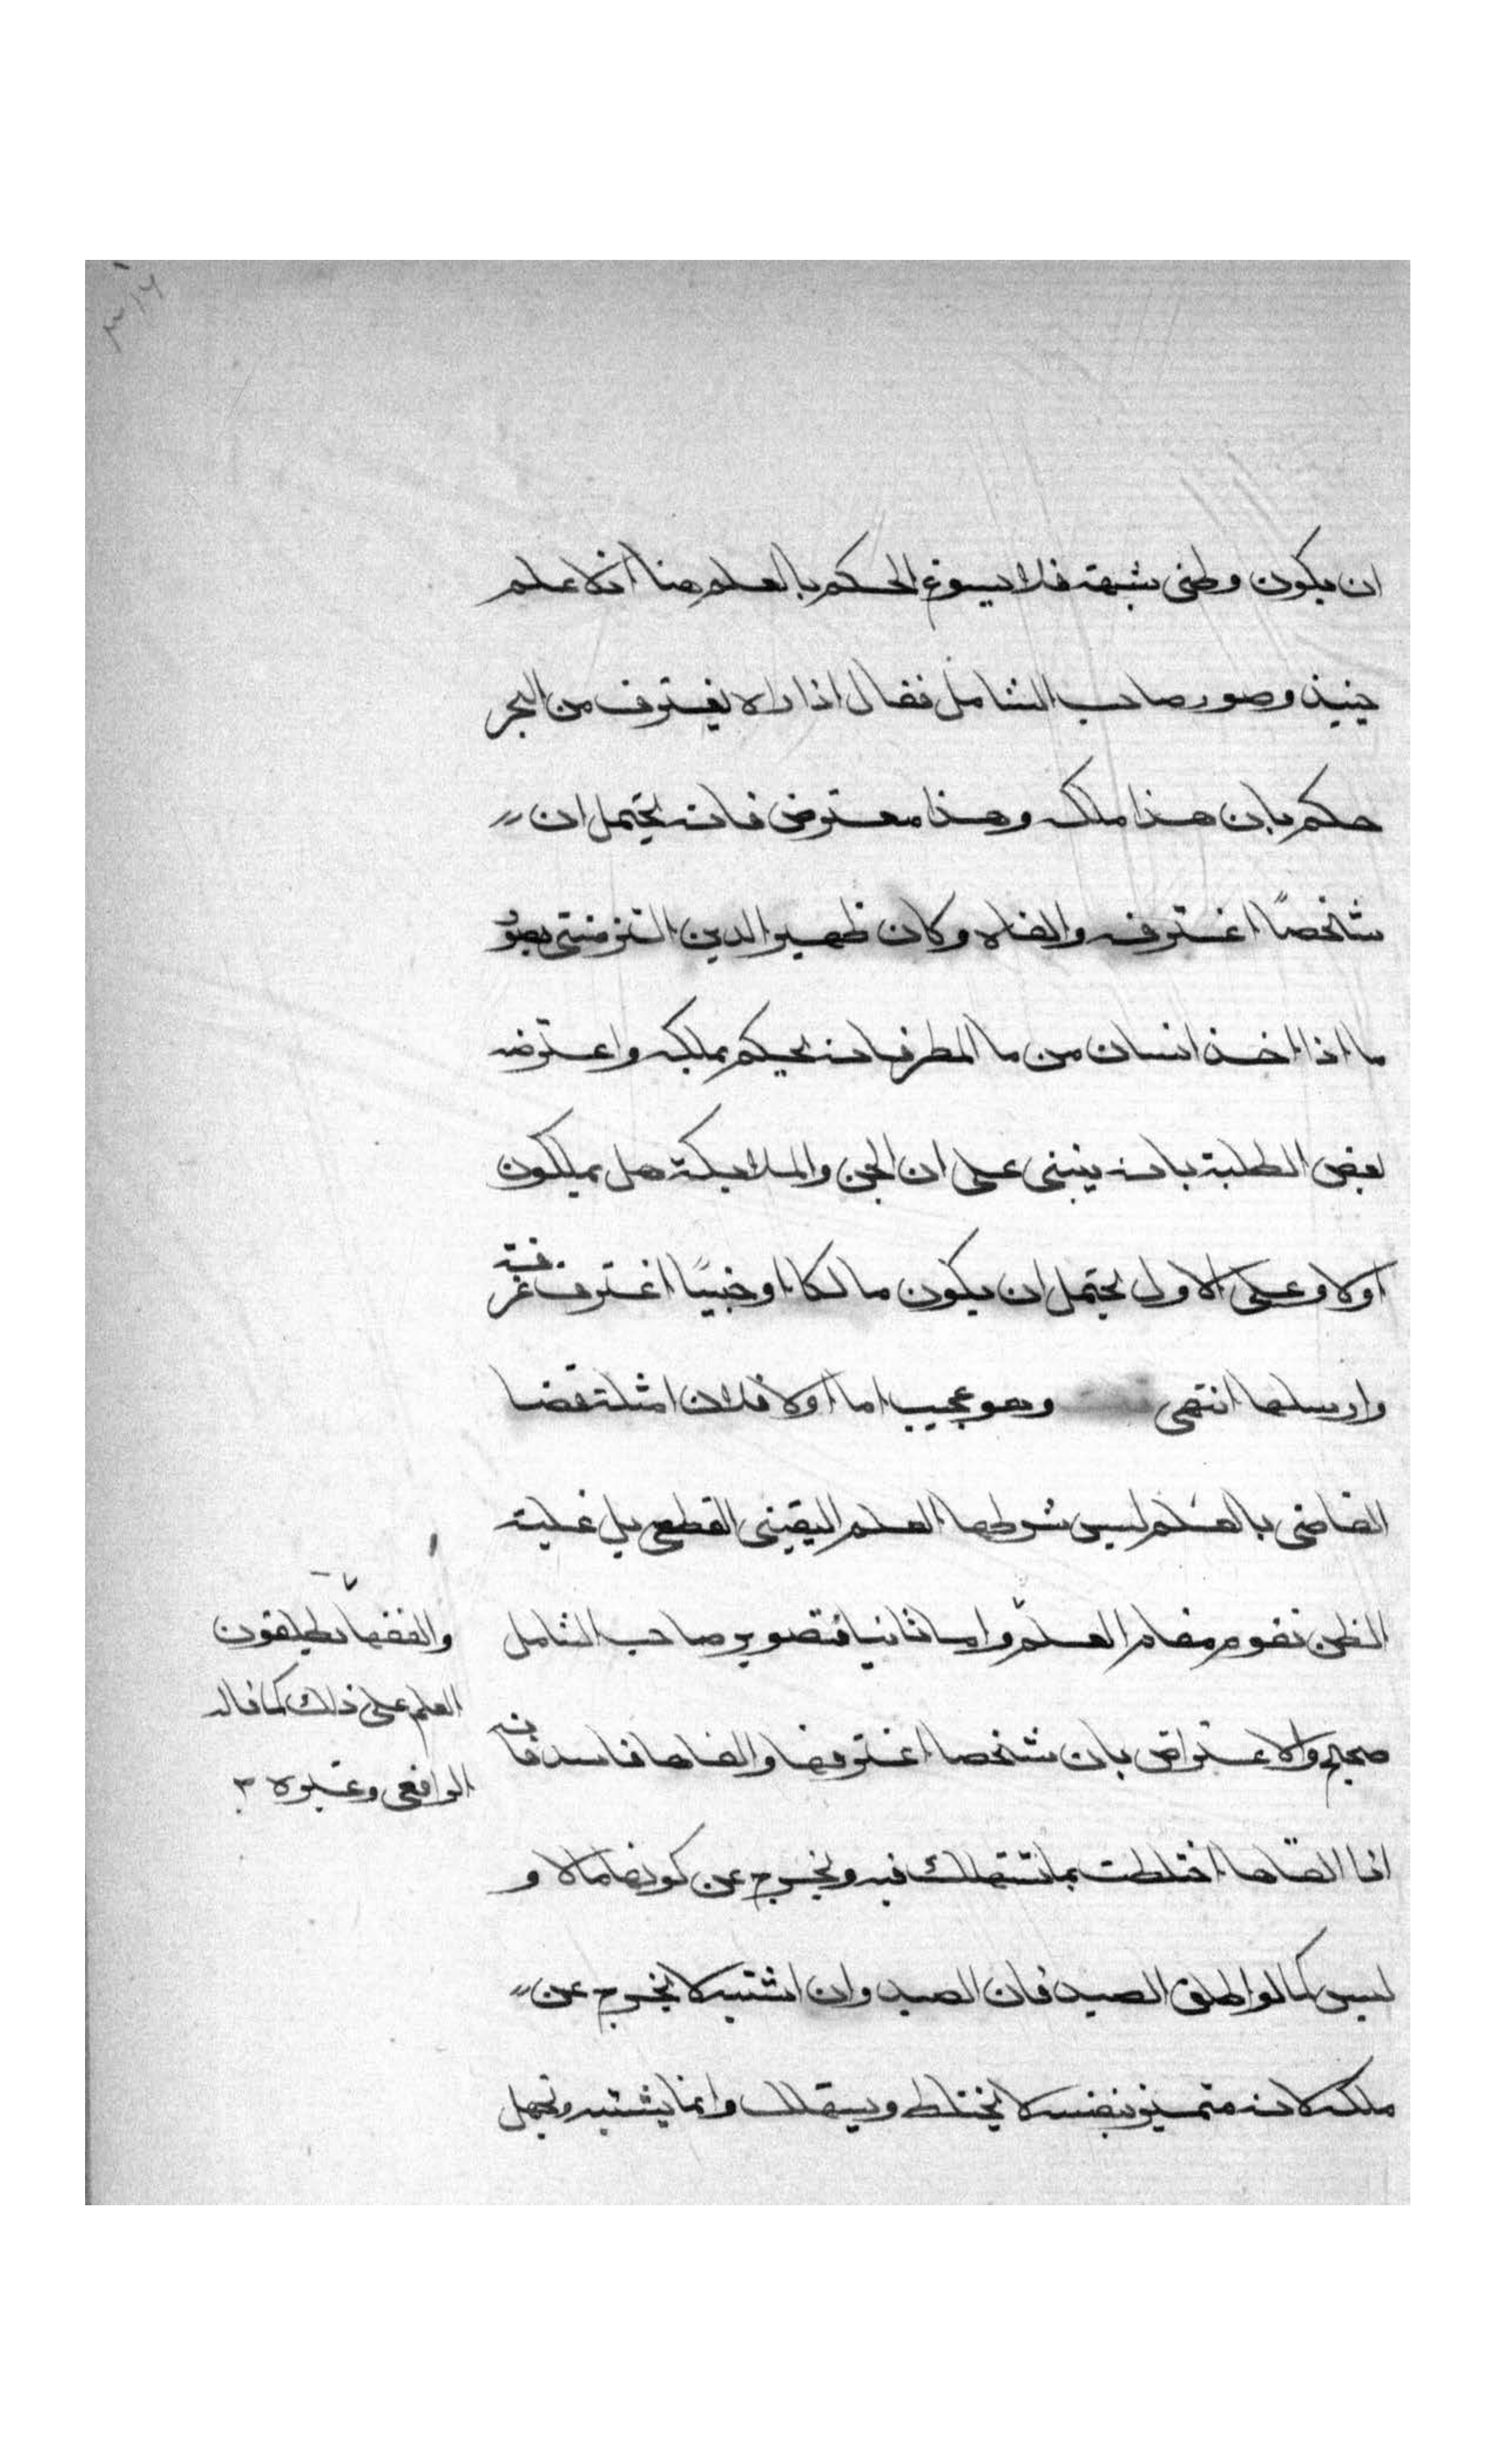 ٣١٦
ان يكون وطئ بشبهة فلا يسوغ الحكم بالعلم هنا اذ لا علم
حينيذ وصور صاحب الشامل فقال اذا راه يغترف من البحر
حكم بان هذا ملكه وهذا معترض فانه يحتمل ان
شخصًا اغترفه والقاه وكان ظهير الدين التزمنتي يصو
ما اذا اخذ انسان من ما المطر فانه يحكم بملكه واعترضه
بعض الطلبة بانه ينبني على ان الجن والملايكة هل يملكون
اولا وعلى الاول يحتمل ان يكون مالكا او جنيًا اغترف غرفة
وارسلها انتهى وهو عجيب اما اولا فلان امثلة قضا
القاضي بالعلم ليس شرطها العلم اليقيني القطعي بل غلبة
الظن تقوم مقام العلم واما ثانيا فتصوير صاحب الشامل
صحيح والاعتراض بان شخصا اغترفها والقاها فاسد فانه
اذا القاها اختلطت بما تستهلك فيه وتخرج عن كونها مالا و
ليس كما لو اطلق الصيد فان الصيد وان اشتبه لا يخرج عن
ملكه لانه متميز بنفسه لا يختلط ويستهلك وانما يشتبه ويجهل
والفقها يطلقون
العلم على ذلك كما قاله
الرافعي وغيره